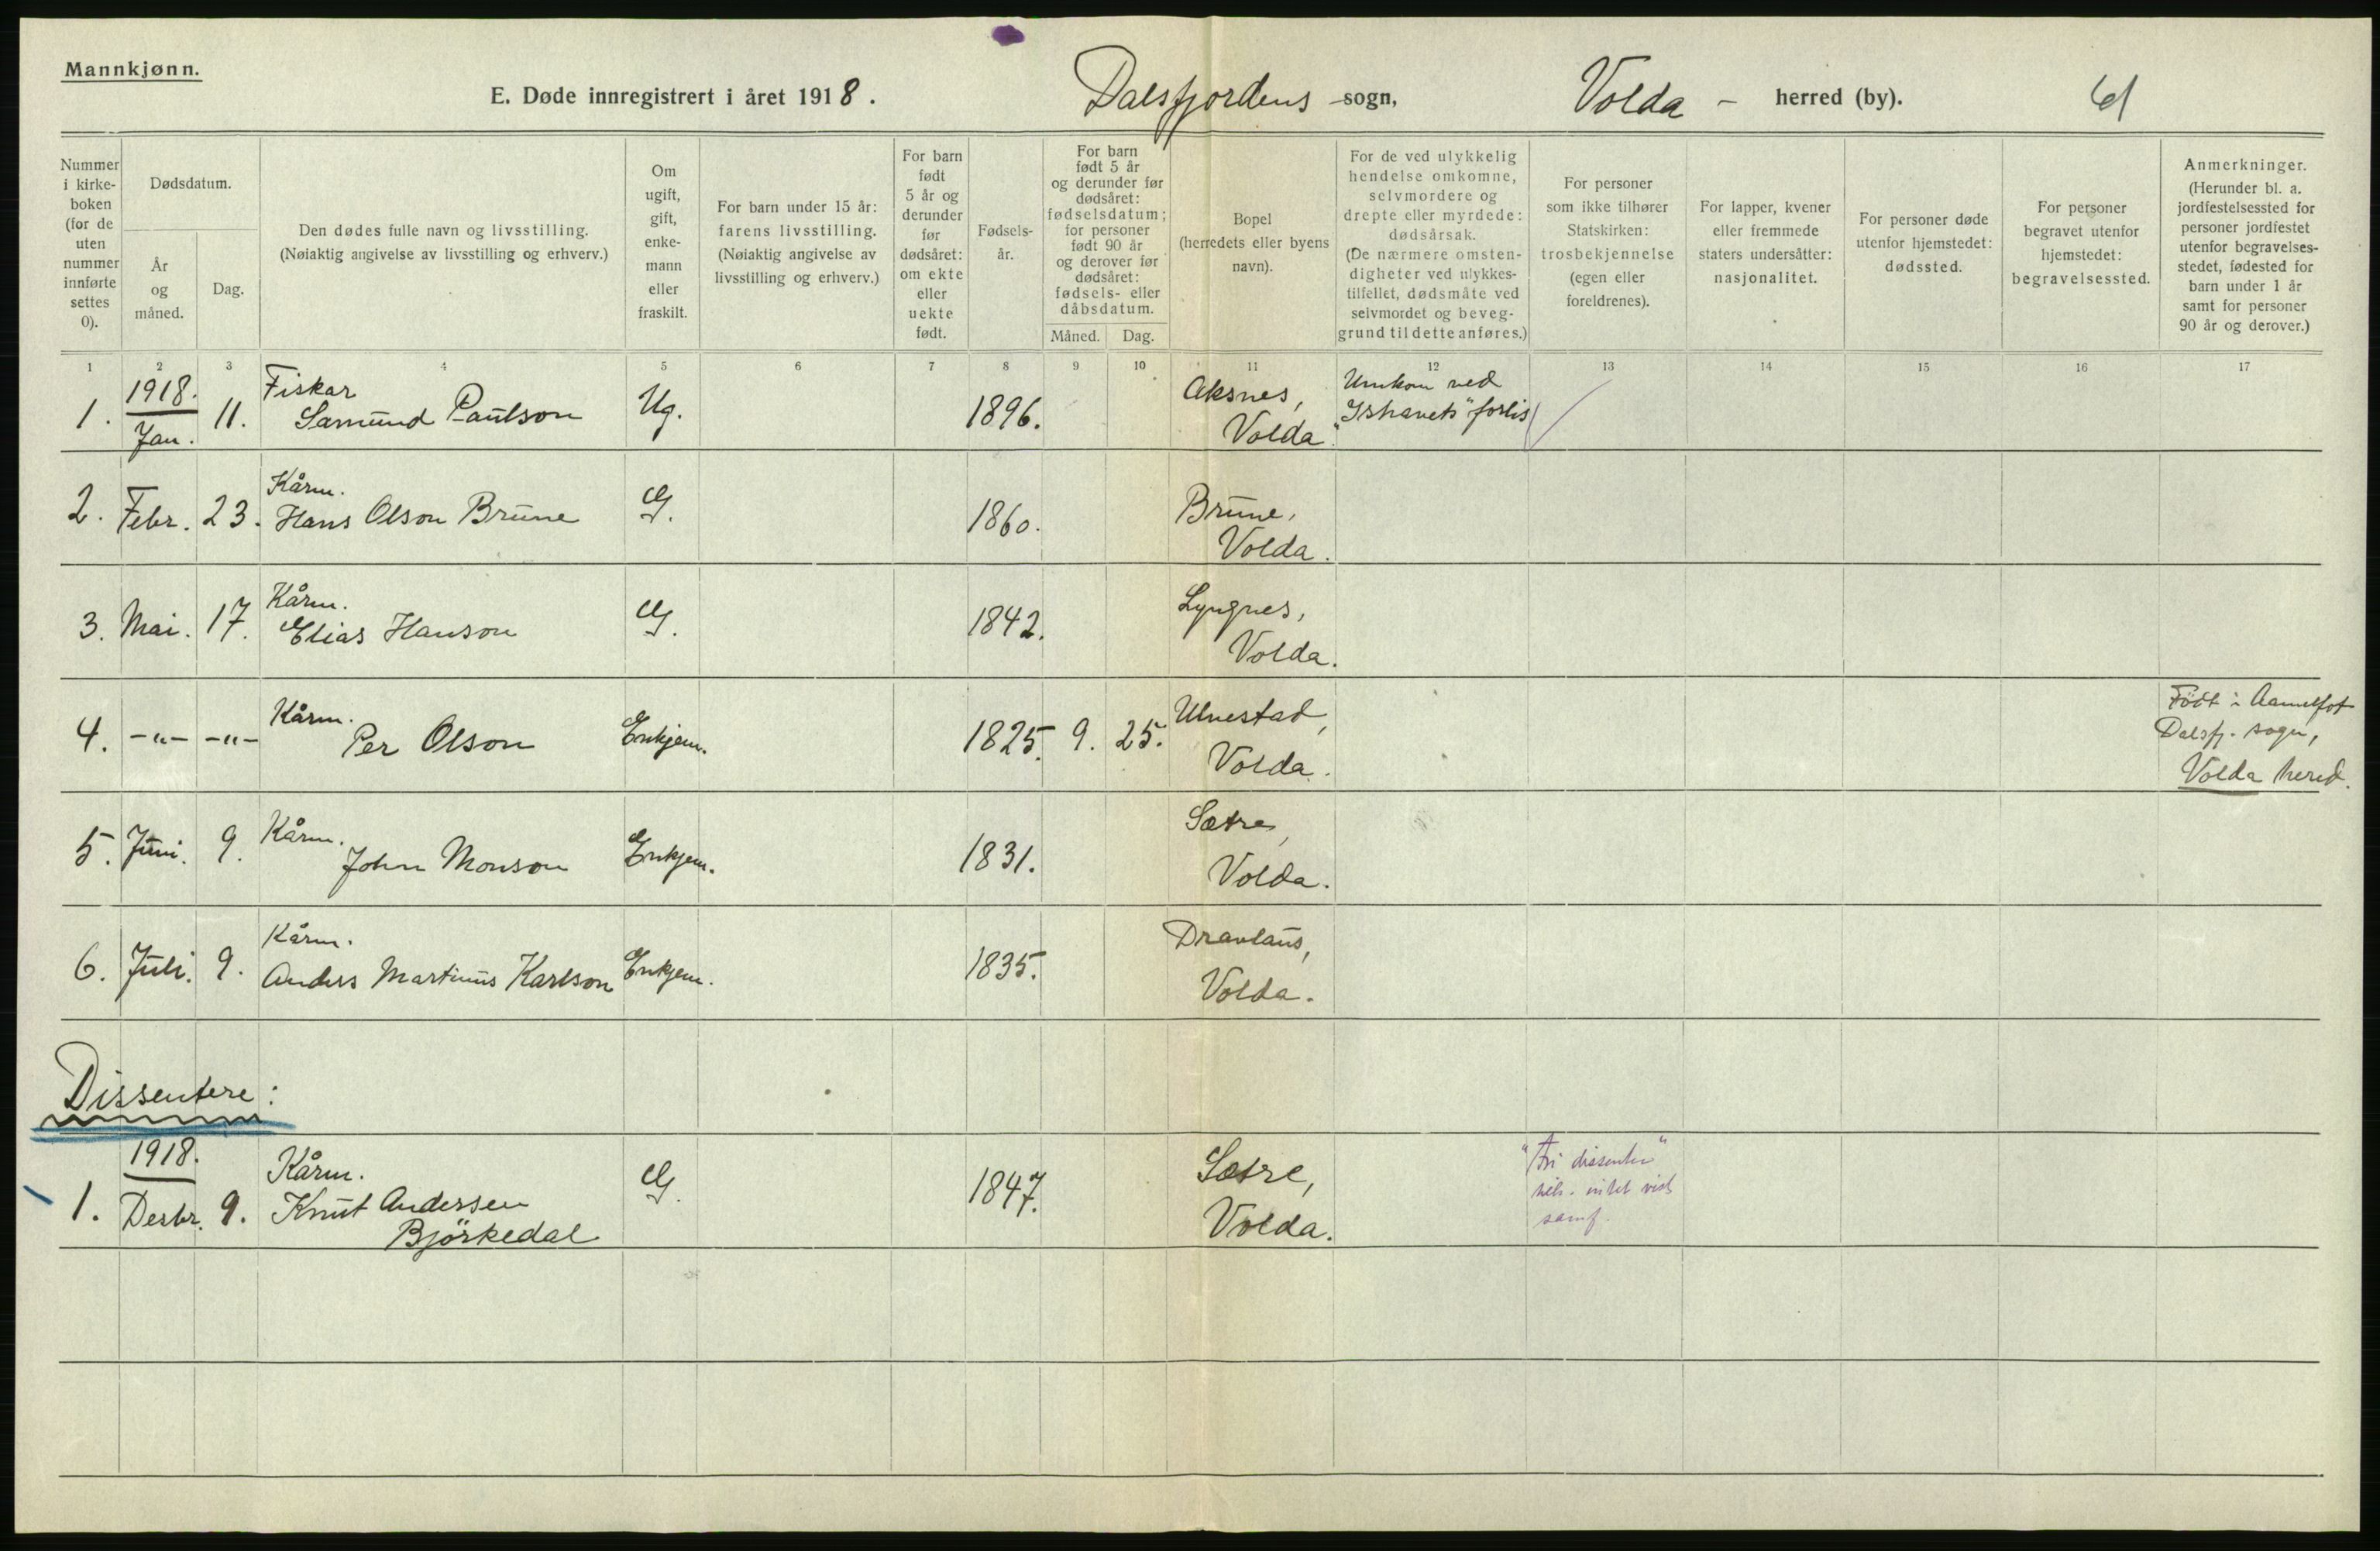 Mannkjønn.
E. Døde innregistrert i året 1918. Dalsfjordens -sogn, Volda - herred (by). 61
Nummer i kirke- boken (for de uten nummer innførte settes 0).
Dødsdatum.
År og måned.
Dag.
Den dødes fulle navn og livsstilling.
(Nøiaktig angivelse av livsstilling og erhverv.)
Om ugift, gift, enke- mann eller fraskilt.
For barn under 15 år: farens livsstilling.
(Nøiaktig angivelse av livsstilling og erhverv.)
For barn født 5 år og derunder før dødsåret: om ekte eller uekte født.
Fødsels- år.
For barn født 5 år og derunder før dødsåret: fødselsdatum; for personer født 90 år og derover før dødsåret: fødsels- eller dåbsdatum.
Måned.
Dag.
Bopel (herredets eller byens navn).
For de ved ulykkelig hendelse omkomne, selvmordere og drepte eller myrdede: dødsårsak.
(De nærmere omsten- digheter ved ulykkes- tilfellet, dødsmåte ved selvmordet og beveg- grund til dette anføres.)
For personer som ikke tilhører Statskirken: trosbekjennelse (egen eller foreldrenes).
For lapper, kvener eller fremmede staters undersåtter: nasjonalitet.
For personer døde utenfor hjemstedet: dødssted.
For personer begravet utenfor hjemstedet: begravelsessted.
Anmerkninger.
(Herunder bl. a. jordfestelsessted for personer jordfestet utenfor begravelses- stedet, fødested for barn under 1 år samt for personer 90 år og derover.)
1 2 3 4 5 6 7 8 9 10 11 12 13 14 15 16 17
1918. Fiskar Aksnes, Umkom ved
1. Jan. 11. Samund Paulson Ug. 1896. Volda. "Ishavets" forlis
Kårm.
2. Febr. 23. Hans Olson Brune G. 1860. Brune,
Volda.
Kårm.
3. Mai. 17. Elias Hanson G. 1842. Lyngnes,
Volda.
Kårm. Ulvestad, Født i Aamelfot
4. -"- -"- Per Olson Enkjem. 1825. 9. 25. Volda. Dalsfj. sogn,
Volda herad.
Kårm. Sætre,
5. Juni. 9. John Monson Enkjem. 1831. Volda.
Kårm. Dravlaus,
6. Juli. 9. Anders Martinus Karlson Enkjem. 1835. Volda.
Dissentere:
1918. Kårm. Sætre, "Fri dissenter"
1. Desbr. 9. Knut Andersen G. 1847. Volda. intet vist
Björkedal samf.